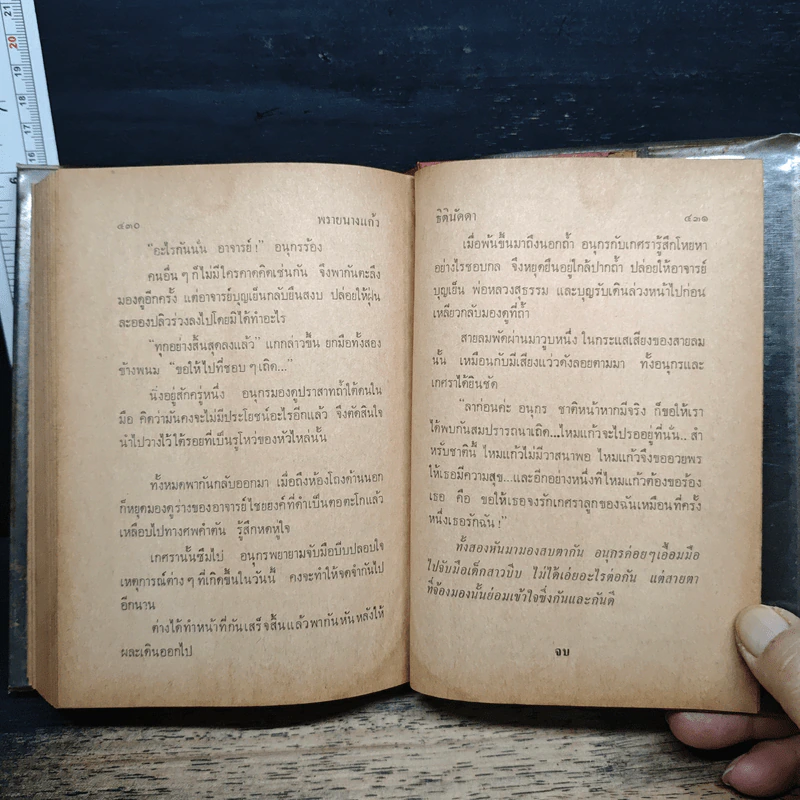 ๔๓๐ พรายนางแก้ว
"อะไรกันนั่น อาจารย์!" อนุกรร้อง
คนอื่น ๆ ก็ไม่มีใครคาดคิดเช่นกัน จึงพากันตะลึง
มองดูอีกครั้ง แต่อาจารย์บุญเย็นกลับยืนสงบ ปล่อยให้ฝุ่น
ละอองปลิวร่วงลงไปโดยมิได้ทำอะไร
"ทุกอย่างสิ้นสุดลงแล้ว" แกกล่าวขึ้น ยกมือทั้งสอง
ข้างพนม "ขอให้ไปที่ชอบ ๆ เถิด..."
นิ่งอยู่สักครู่หนึ่ง อนุกรมองดูปราสาทถ้ำใต้ตนใน
มือ คิดว่ามันคงจะไม่มีประโยชน์อะไรอีกแล้ว จึงตัดสินใจ
นำไปวางไว้ใต้รอยที่เป็นรูโหว่ของหัวไหล่นั้น
ทั้งหมดพากันกลับออกมา เมื่อถึงห้องโถงด้านนอก
ก็หยุดมองดูร่างของอาจารย์ไชยยงค์ที่ดำเป็นตอตะโกแล้ว
เหลือบไปทางศพคำตัน รู้สึกหดหู่ใจ
เกศรานั้นซึมไป อนุกรพยายามจับมือบีบปลอบใจ
เหตุการณ์ต่าง ๆ ที่เกิดขึ้นในวันนี้ คงจะทำให้จดจำกันไป
อีกนาน
ต่างได้ทำหน้าที่กันเสร็จสิ้นแล้วพากันหันหลังให้
ผละเดินออกไป
ธิตินัดดา ๔๓๑
เมื่อพ้นขึ้นมาถึงนอกถ้ำ อนุกรกับเกศรารู้สึกโหยหา
อย่างไรชอบกล จึงหยุดยืนอยู่ใกล้ปากถ้ำ ปล่อยให้อาจารย์
บุญเย็น พ่อหลวงสุธรรม และบุญรับเดินล่วงหน้าไปก่อน
เหลียวกลับมองดูที่ถ้ำ
สายลมพัดผ่านมาวูบหนึ่ง ในกระแสเสียงของสายลม
นั้น เหมือนกับมีเสียงแว่วดังลอยตามมา ทั้งอนุกรและ
เกศราได้ยินชัด
"ลาก่อนค่ะ อนุกร ชาติหน้าหากมีจริง ก็ขอให้เรา
ได้พบกันสมปรารถนาเถิด...ไหมแก้วจะไปรออยู่ที่นั่น.. สำ
หรับชาตินี้ ไหมแก้วไม่มีวาสนาพอ ไหมแก้วจึงขออวยพร
ให้เธอมีความสุข...และอีกอย่างหนึ่งที่ไหมแก้วต้องขอร้อง
เธอ คือ ขอให้เธอจงรักเกศราลูกของฉันเหมือนที่ครั้ง
หนึ่งเธอรักฉัน!"
ทั้งสองหันมามองสบตากัน อนุกรค่อย ๆ เอื้อมมือ
ไปจับมือเด็กสาวบีบ ไม่ได้เอ่ยอะไรต่อกัน แต่สายตา
ที่จ้องมองนั้นย่อมเข้าใจซึ่งกันและกันดี
จบ
21
20
19
18
17
16